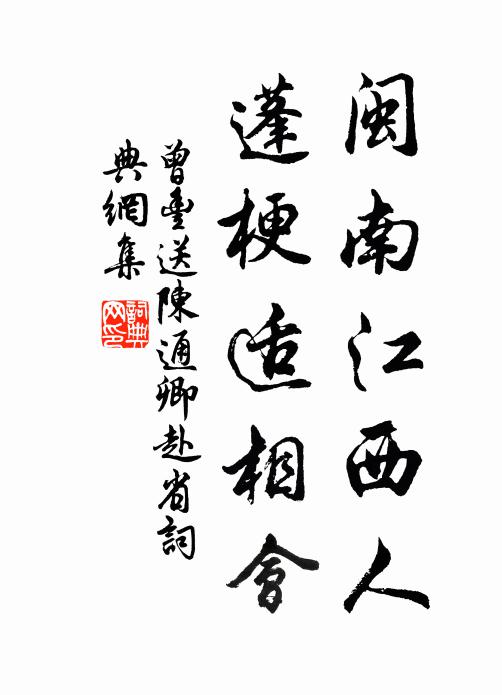 闽南江西人
蓬梗适相會
曾豊送陳通卿赴省詞
典網集
詞典網印